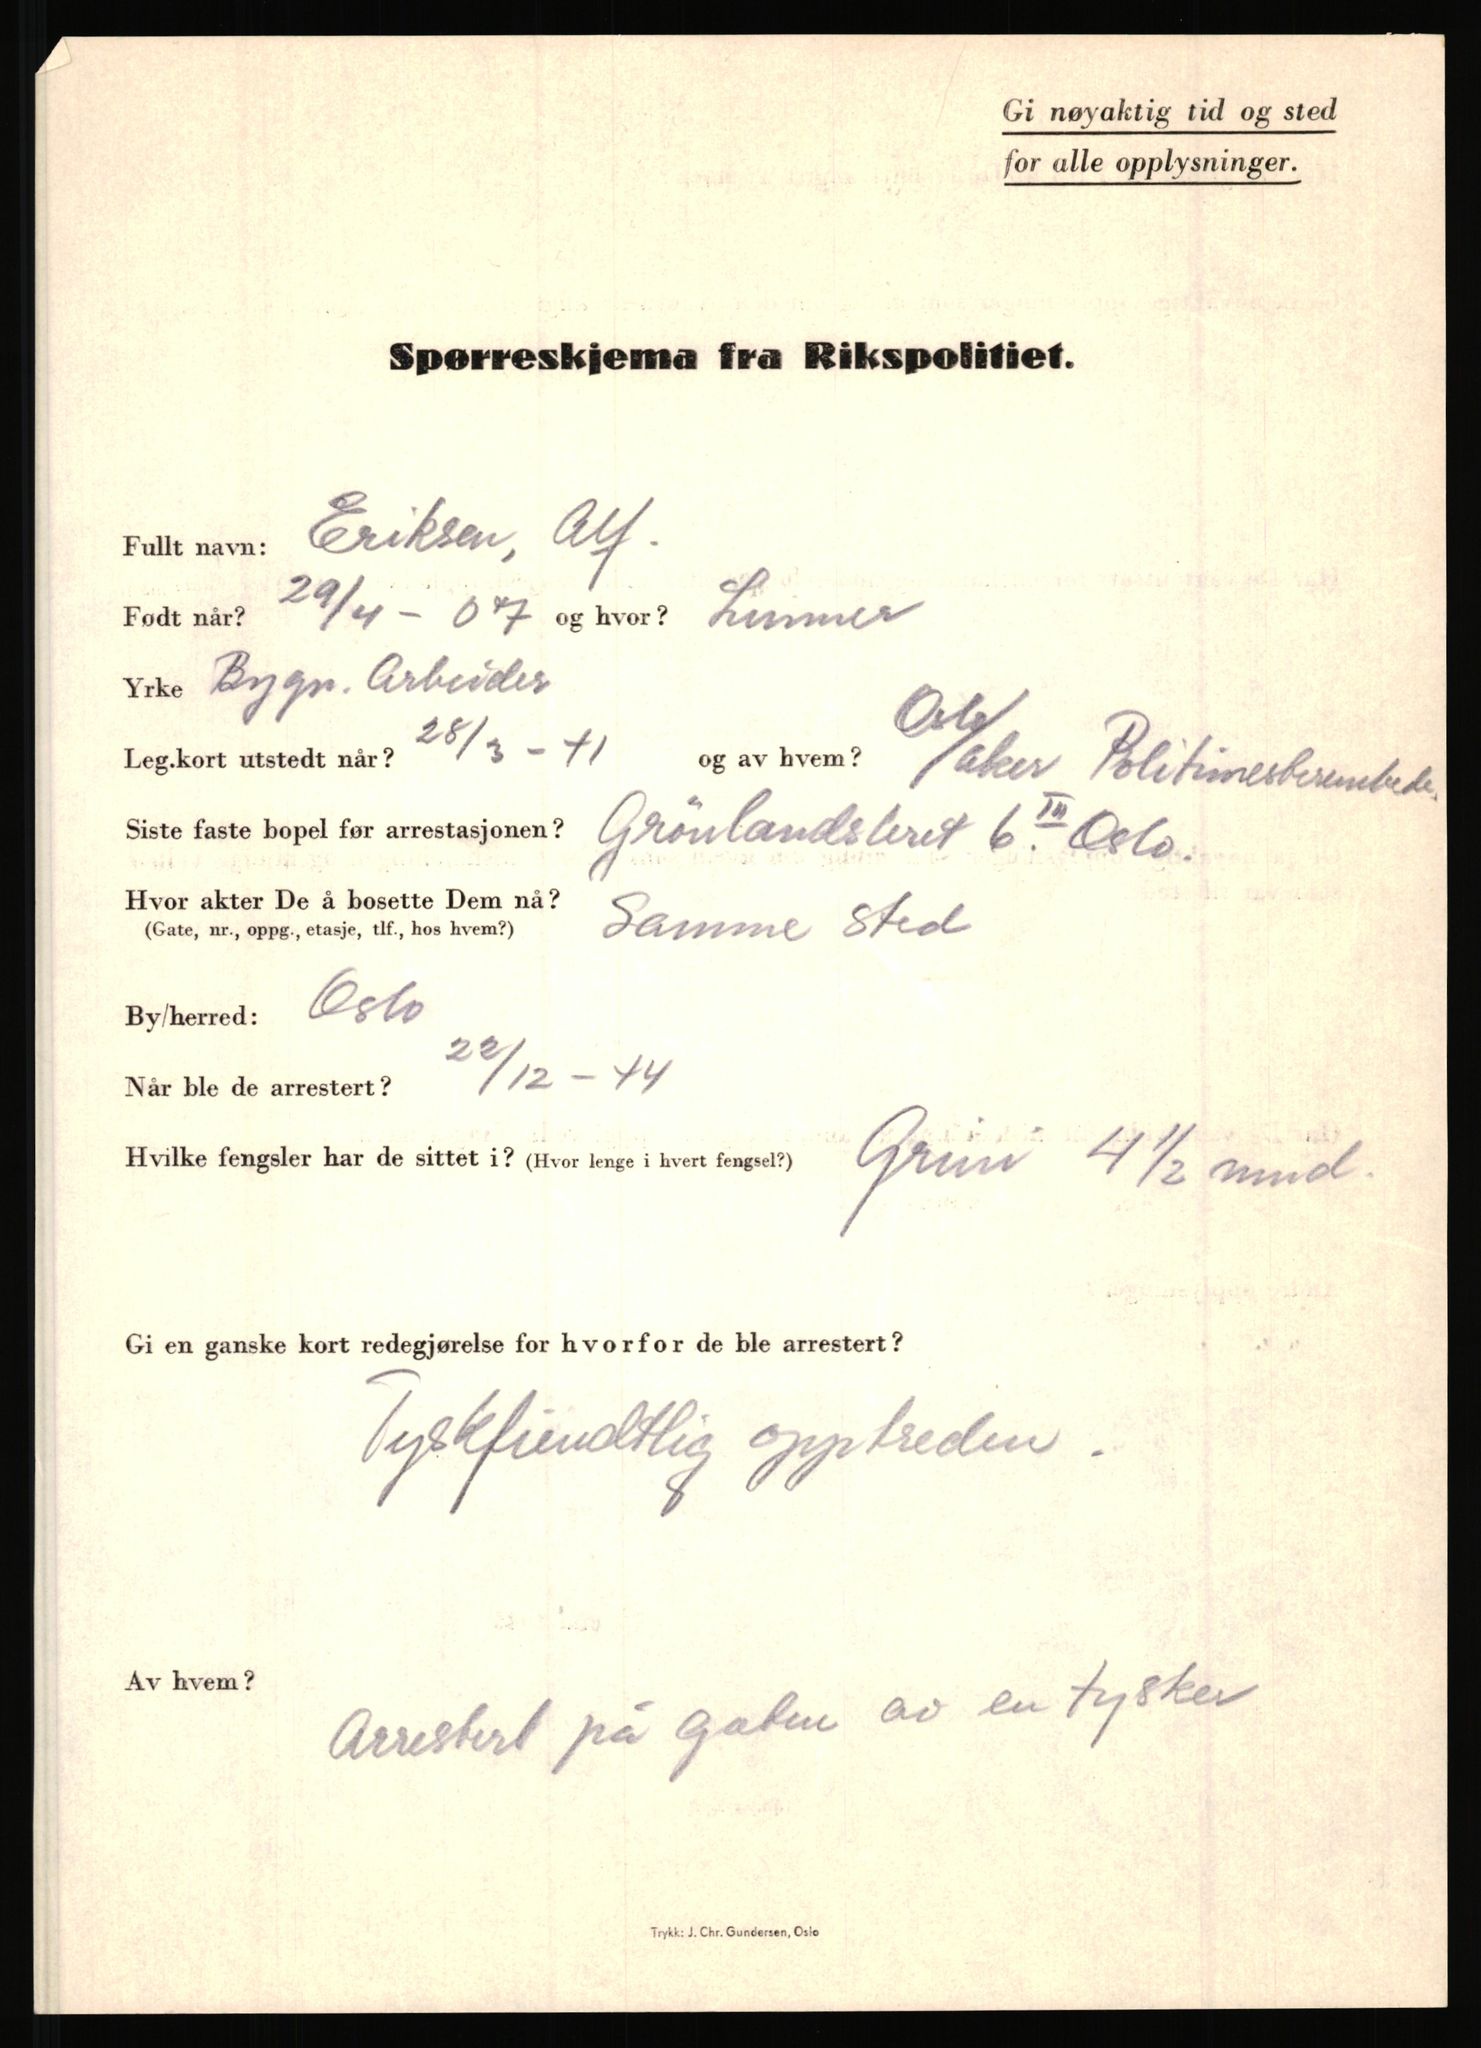 Gi nøyaktig tid og sted
for alle opplysninger.
Spørreskjema fra Rikspolitiet.
Fullt navn: Eriksen, Alf.
Født når? 29/4 - 07 og hvor? Lunner
Yrke Bygn. Arbeider
Leg.kort utstedt når? 28/3 - 41 og av hvem? Oslo/aker Politimesterembede.
Siste faste bopel før arrestasjonen? Grönlandsleret 6 III Oslo.
Hvor akter De å bosette Dem nå? Samme sted
(Gate, nr., oppg., etasje, tlf., hos hvem?)
By/herred: Oslo
Når ble de arrestert? 22/12 - 44
Hvilke fengsler har de sittet i? (Hvor lenge i hvert fengsel?) Grini 4 1/2 mnd.
Gi en ganske kort redegjørelse for hvorfor de ble arrestert?
Tyskfiendtlig opptreden.
Av hvem?
Arrestert på gaten av en tysker
Trykk: J. Chr. Gundersen, Oslo